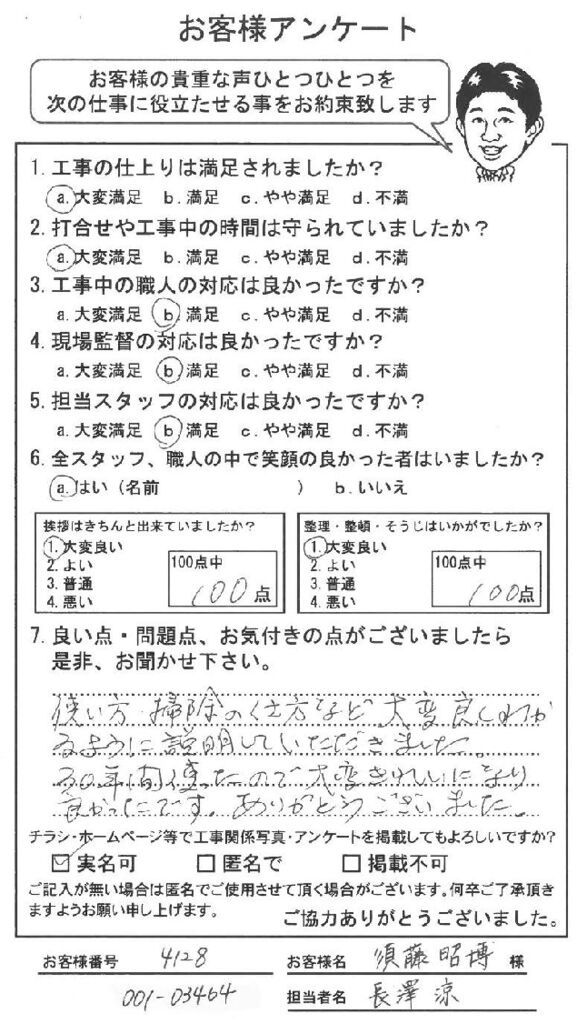 お客様アンケート
お客様の貴重な声ひとつひとつを
次の仕事に役立たせる事をお約束致します
1. 工事の仕上りは満足されましたか？
a. 大変満足 b. 満足 c. やや満足 d. 不満
2. 打合せや工事中の時間は守られていましたか？
a. 大変満足 b. 満足 c. やや満足 d. 不満
3. 工事中の職人の対応は良かったですか？
a. 大変満足 b. 満足 c. やや満足 d. 不満
4. 現場監督の対応は良かったですか？
a. 大変満足 b. 満足 c. やや満足 d. 不満
5. 担当スタッフの対応は良かったですか？
a. 大変満足 b. 満足 c. やや満足 d. 不満
6. 全スタッフ、職人の中で笑顔の良かった者はいましたか？
a. はい（名前 ） b. いいえ
挨拶はきちんと出来ていましたか？
1. 大変良い
2. よい
3. 普通
4. 悪い
100点中
100点
整理・整頓・そうじはいかがでしたか？
1. 大変良い
2. よい
3. 普通
4. 悪い
100点中
100点
7. 良い点・問題点、お気付きの点がございましたら
是非、お聞かせ下さい。
使い方、掃除のし方など、大変良くわか
るように説明していただきました。
30年間使ったので大変きれいになり
良かったです。ありがとうございました。
チラシ・ホームページ等で工事関係写真・アンケートを掲載してもよろしいですか？
☑ 実名可 □ 匿名で □ 掲載不可
ご記入が無い場合は匿名でご使用させて頂く場合がございます。何卒ご了承頂き
ますようお願い申し上げます。
ご協力ありがとうございました。
お客様番号 4128 お客様名 須藤昭博 様
001-03464 担当者名 長澤 涼